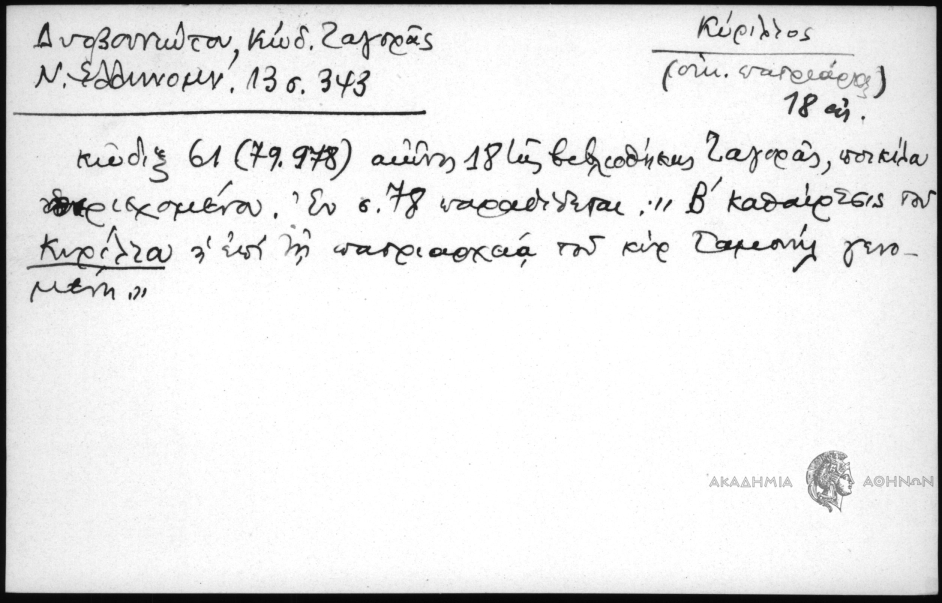 Δυοβουνιώτου, Κώδ. Ζαγορᾶς
Ν. Ἑλληνομν. 13 σ. 343
Κύριλλος
(οἰκ. πατριάρχης)
18 αἰ.
κῶδιξ 61 (79.978) αἰῶνος 18 τῆς βιβλιοθήκης Ζαγορᾶς, ποικίλα
περιεχομένου. Ἐν σ. 78 παρατίθεται: " Β' καθαίρεσις τοῦ
Κυρίλλου ἡ ἐπὶ τῇ πατριαρχείᾳ τοῦ κὺρ Σαμουὴλ γενο-
μένη."
ἈΚΑΔΗΜΙΑ ΑΘΗΝΩΝ